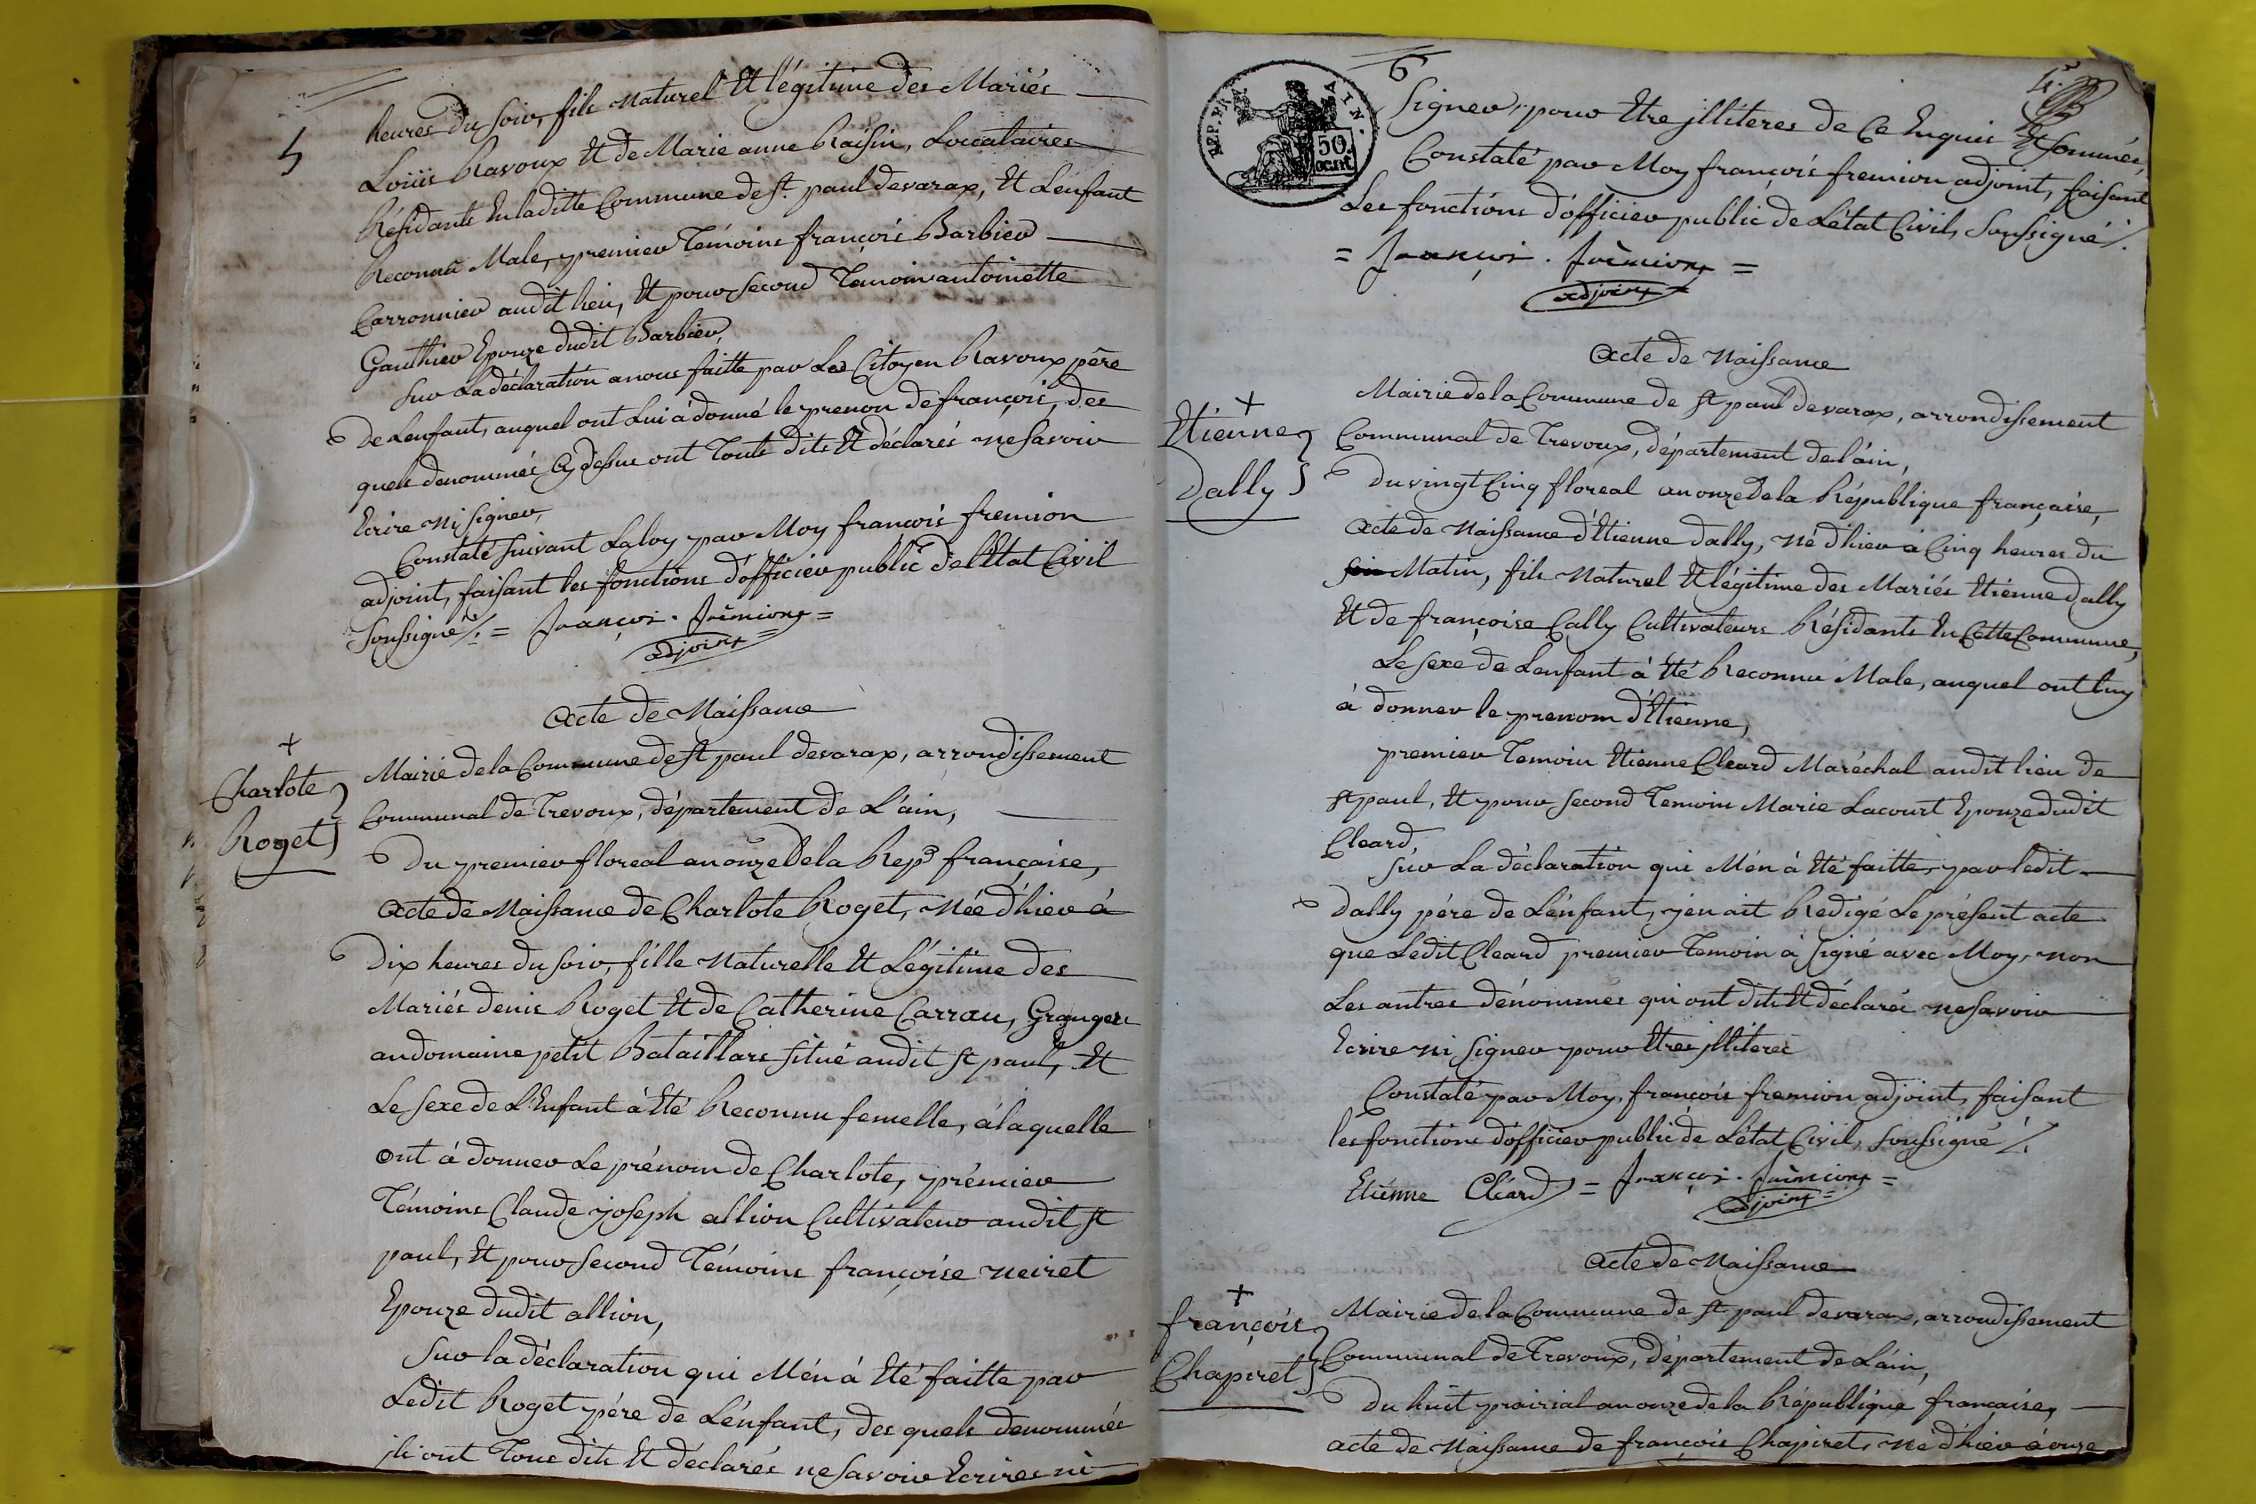 5
heures du soir, fils naturel Et légitime des Mariés
Loüis Ravoux Et de Marie anne Raisin, Loccataires
Résidants En laditte Commune de st. paul devarax, Et L'enfant
Reconnû Male, premier Témoins françois Barbier
Carronnier audit lieu, Et pour second Témoin antoinette
Gauthier Epouze dudit Barbier,
sur La déclaration a nous faitte par Le Citoyen Ravoux père
de Lenfant, auquel ont Lui à donné le prenon de françois, des
quels denommés Cy desus ont Touts dits Et déclarés ne savoir
Ecrire ny signer,
Constaté suivant La loy par Moy francois fremion
adjoint, faisant les fonctions d'officier public de l'Etat Civil
soussigné /. = françois . frèmion =
adjoint =
acte de Naissance
+
Charlote
Roget
Mairie de la Commune de st paul devarax, arrondissement
Communal de Trevoux, département de L'ain,
Du premier floreal an onze de la Rep.e française,
acte de Naissance de Charlote Roget, Née d'hier à
Dix heures du soir, fille naturelle Et Légitime des
Mariés denis Roget Et de Catherine Carrau, Grangers
au domaine petit Bataillars situé audit st paul, Et
Le sexe de L'Enfant à Eté Reconnu femelle, à laquelle
ont à donner Le prénom de Charlote, prémier
Témoins Claude joseph allion Cultivateur audit st
paul, Et pour second Témoins françoise neiret
Epouze dudit allion,
sur la déclaration qui M'en à Eté faitte par
Ledit Roget père de L'énfant, des quels denommés
ils ont Tous dits Et déclarés ne savoir Ecrires ni
6
4.e
REP. FRA
AIN.
50.
cent
signer, pour Etre jlliteres de Ce Enquis Et sommés,
Constaté par Moy françois fremion adjoint, faisant
Les fonctions d'officier public de L'état Civil, soussigné /.
= françois . frèmion =
adjoint
acte de Naissance
+
Etienne
Dally
Mairie de la Commune de st paul devarax, arrondissement
Communal de Trevoux, département de l'ain,
Du vingt Cinq floreal an onze de la République française,
acte de Naissance d'Etienne Dally, né d'hier à Cinq heures du
soir Matin, fils naturel Et légitime des Mariés Etienne Dally
Et de françoise Cally Cultivateurs Résidants En Cette Commune,
Le sexe de Lenfant à Eté Reconnu Male, auquel ont luy
à donner le prenom d'Etienne,
premier Temoin Etienne Cleard Maréchal audit lieu de
st paul, Et pour second Temoin Marie Lacourt Epouze dudit
Cleard,
sur La déclaration qui M'en à Eté faitte, par ledit
Dally père de L'énfant, j'en ait Redigé Le présent acte
que Ledit Cleard premier Temoin à signé avec Moy, non
Les autres dénommés qui ont dits Et déclarés ne savoir
Ecrire ni signer pour Etres jlliteres
Constaté par Moy, françois fremion adjoint, faisant
les fonctions d'officier public de L'état Civil, soussigné /.
Etiénne Cléard = françois . frèmion =
adjoint =
acte de Naissance
+
françois
Chapiret
Mairie de la Commune de st paul devarax, arrondissement
Communal de Trevoux, département de L'ain,
Du huit prairial an onze de la République française,
acte de Naissance de françois Chapiret, né d'hier à onze